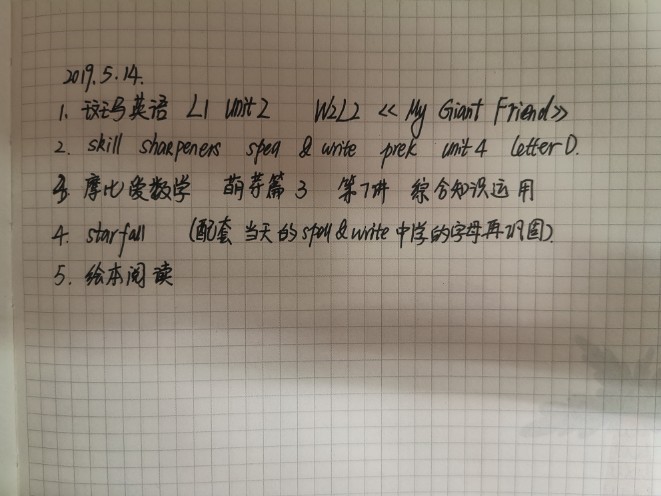 2019.5.14.
1. 斑马英语 L1 Unit2 W2L2 《My Giant Friend》
2. skill sharpeners spell & write prek unit 4 letter D.
3. 摩比爱数学 萌芽篇 3 第7讲 综合知识运用
4. starfall (配套 当天的 spell & write 中学的字母再巩固).
5. 绘本阅读